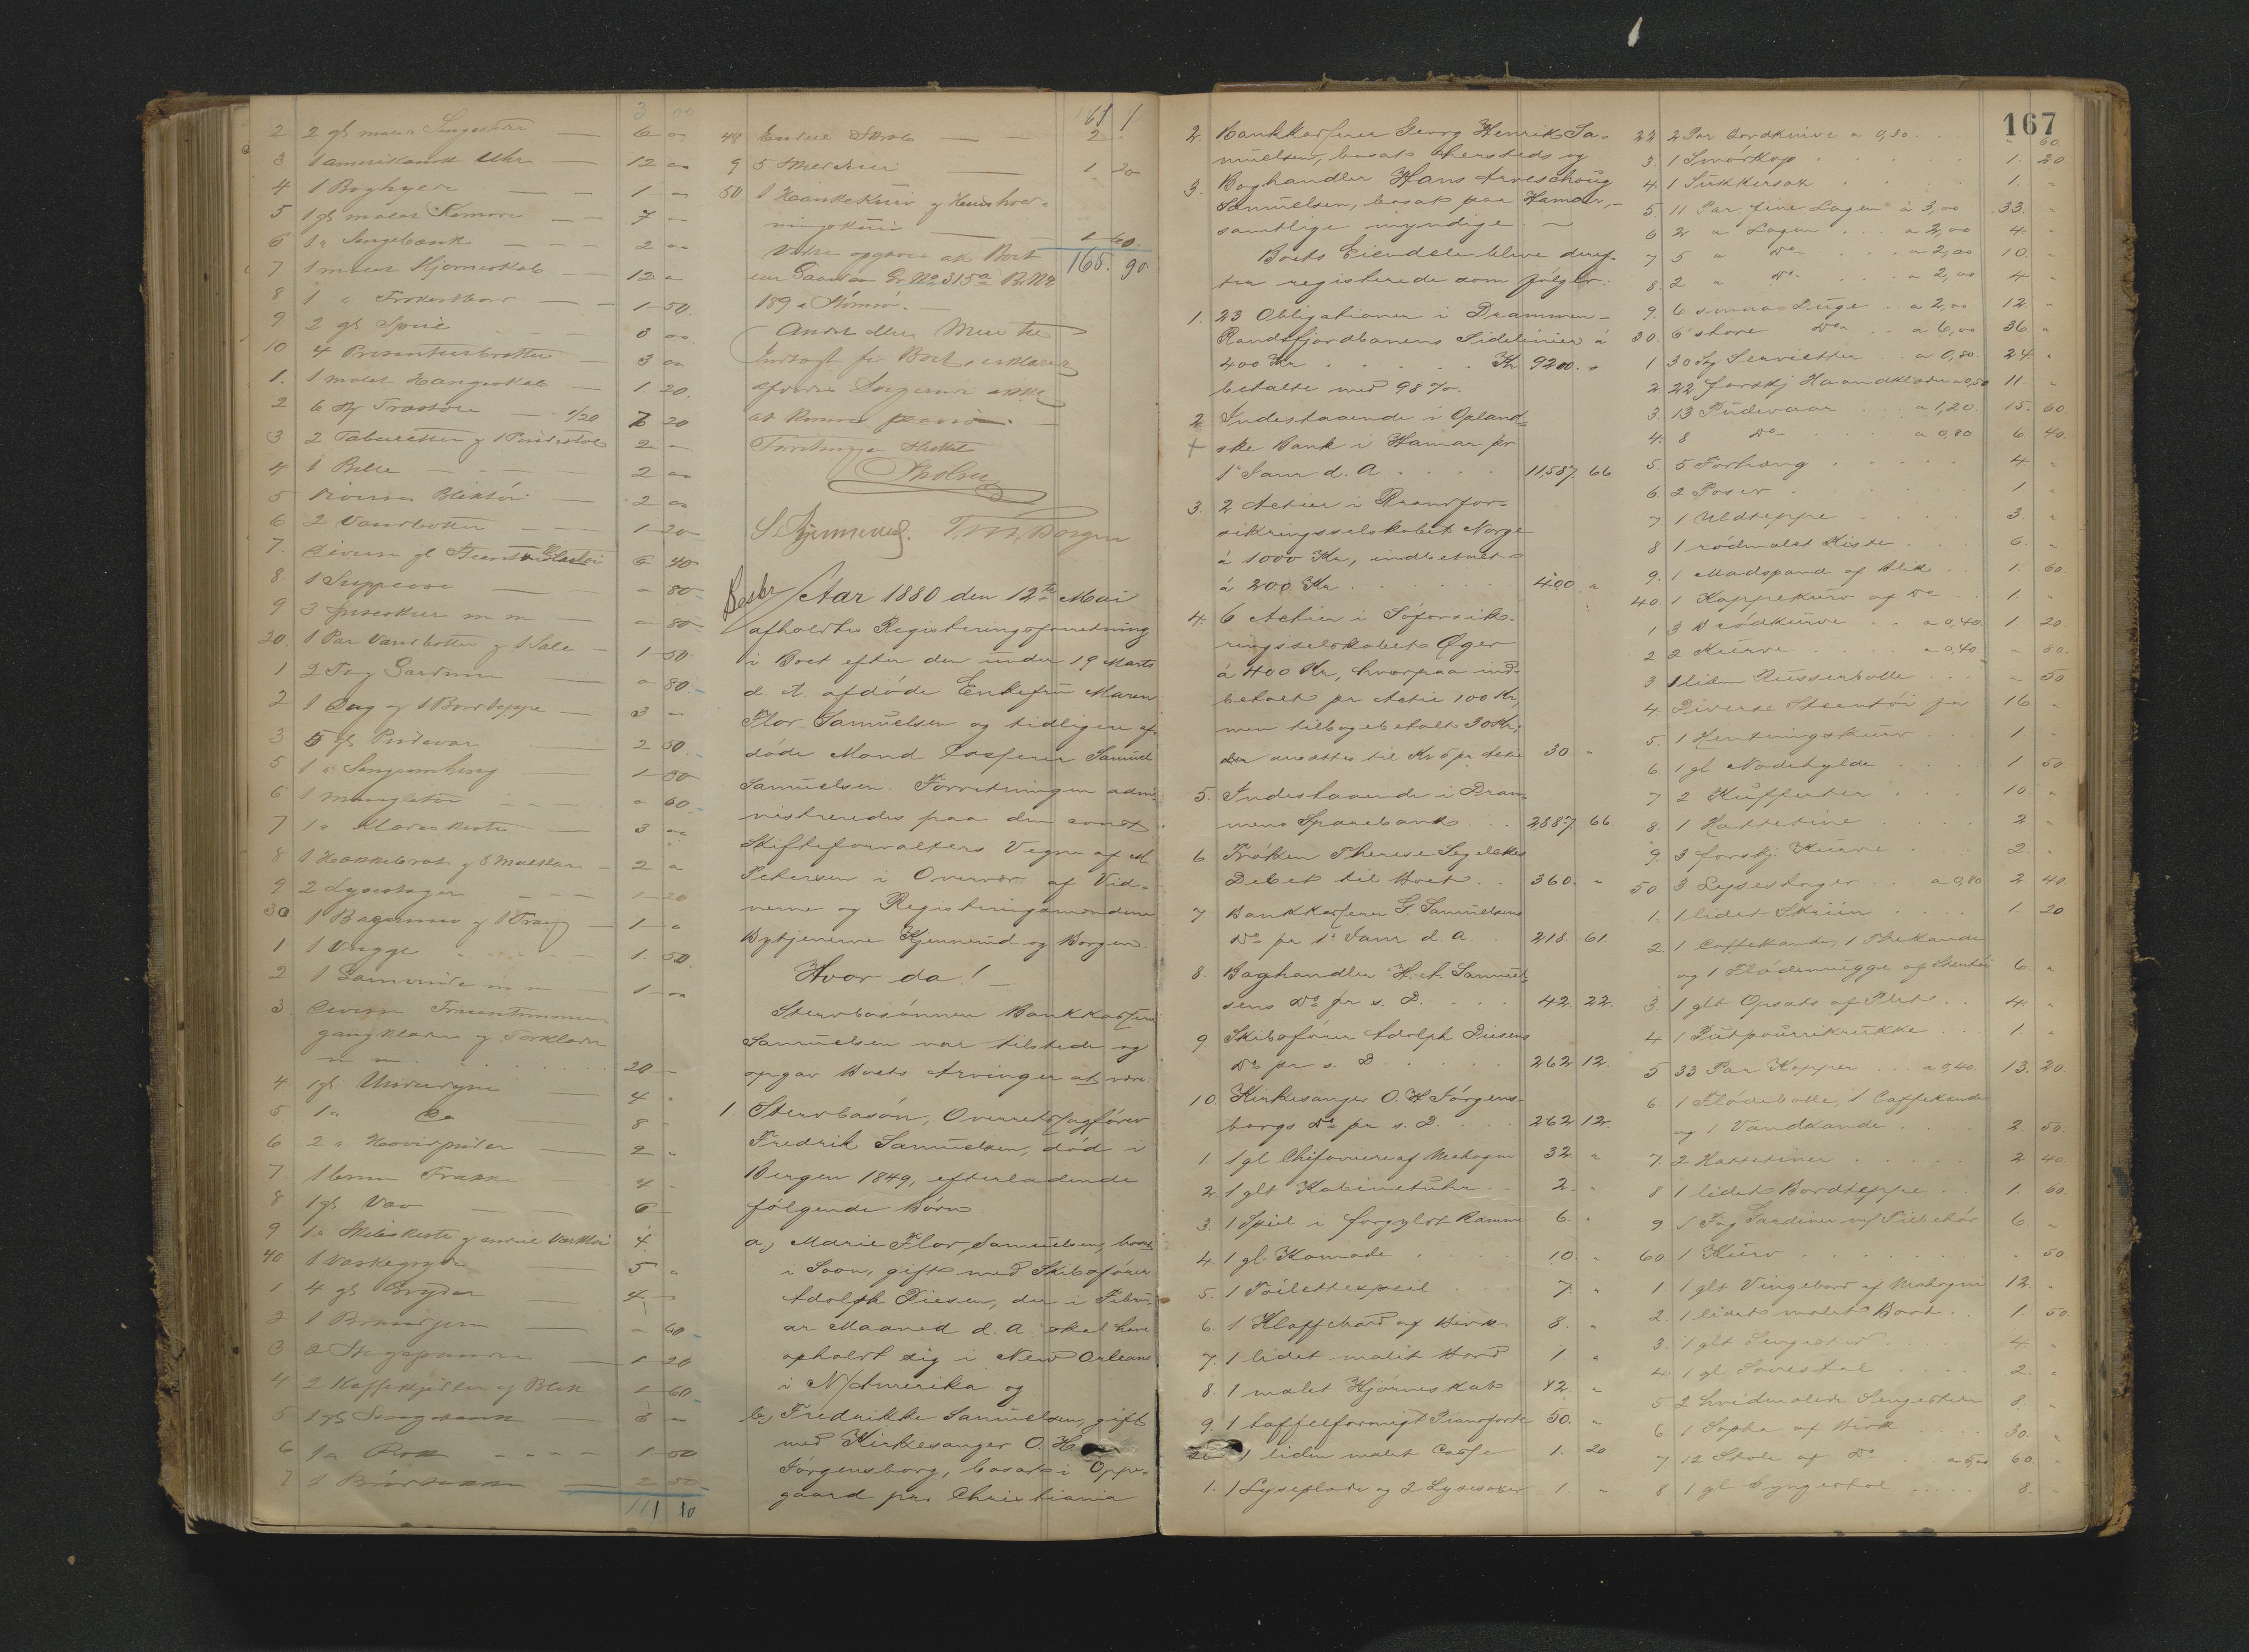 3 00
2 2 gl malede Sengesteder — 6 00
3 1 amerikansk Uhr — 12 00
4 1 Boghylde — 1 00
5 1 gl malet Komode — 7 00
6 1 " Sengebænk — 2 00
7 1 malet Hjørneskab — 12 "
8 1 " — 1 50
9 2 gl Speile
10 4 Presenteerbretter — 3 00
1. 1 malet Hængeskab — 1. 20.
2 6 Stk Træstole — 1/20 7 20
3 2 Tabouretter og 1 — 2 —
4 1 — 2 00
5 Bliktøi — 2 00
6 2 Vandbøtter — 1 20
7. Diverse gl Steentøi 6 40
8. 1 — " 80
9 3 m m — " 80
20. 1 Par Vandbøtter og 1 — 1 50
1 2 Fag Gardiner — " 80.
2 1 Dug og 1 Bordteppe — 3 —
3 5 gl Pudevar — 2 50.
5 1 " Sengeomhæng — 1 50
6 1 — " 60
7 1 " Klædeskiste — 3 00
8 1 Hakkebræt og — 2 "
9 2 Lysestager — 1 20
30 1 og 1 — 1 "
1 1 Vugge — 1. 50.
2 1 m m — 1 00
3 Diverse Fruentimmer
gangklæder og
m m . . . 20 —
4 1 gl Underdyne 4 "
5 1 " Do 8 "
6 2 " Hovedpuder 2 "
7 1 Frakke 4 "
8 1 gl Væv — 6 —
9 1 " Skibskiste og 4.
40 1 Vaskegryde 5 "
1 4 gl Gryder — 4 —
2 1 — " 60
3 2 Stegepander 1 20
4 2 Kaffekjedler af Blik 1 60
5 1 gl Sengebænk
6 1 " Rok — 1 50
7 1 — 2 50
111 10
61 1
48 2 "
9 5 1 20
50 1 Haankekurv og
1 60.
opgaves at Boet 165. 90
eier Gaarden Gr. No 315a B. No
189 a Strømsø. —
Andet eller Mere til
Indtægt for Boet erklærede
ikke
at kunne paavise. —
Forretningen sluttet
S. Kjennerud. T. M. Borgen
Beskr Aar 1880 den 12te Mai
afholdtes Registreringsforretning
i Boet efter den under 19 Marts
d. A. afdøde Enkefru Maren
Flor Samuelsen og tidligere af-
døde Mand Casserer Samuel
Samuelsen. Forretningen admi-
nistreredes paa den const.
Skifteforvalters Vegne af
Petersen i Overvær af Vid-
nerne og Registreringsmændene
Bytjenerne Kjennerud og Borgen.
Hvor da! —
Stervbosønnen Bankkasserer
Samuelsen var tilstede og
opgav Boets Arvinger at være:
1. Stervbosøn, Overretssagfører
Fredrik Samuelsen, død i
Bergen 1849, efterladende
følgende Børn
a, Marie Flor Samuelsen, bosat
i Soon, gift med Skibsfører
Adolph Diesen, der i Febru-
ar Maaned d. A. skal have
opholdt sig i New Orleans
i N/Amerika og
b, Fredrikke Samuelsen, gift
med Kirkesanger O. H.
Jørgensborg, bosat i Oppe-
gaard pr. Christiania
167
2. Bankkasserer Georg Henrik Sa-
muelsen, bosat hersteds og
3. Boghandler Hans Arveschoug
Samuelsen, bosat paa Hamar, —
samtlige myndige. —
Boets Eiendele bleve deref-
ter registrerede som følger:
1. 23 Obligationer i Drammen-
Randsfjordbanens Sidelinier à
400 Kr . . . . Kr 9200. "
betalte med 98 %.
2 Indestaaende i Opland-
ske Bank i Hamar pr
1. Janr d. A . . . . 11,587. 66
3. 2 Actier i Brandfor-
sikringsselskabet Norge
à 1000 Kr, indbetalt
à 200 Kr . . . . 400 "
4. 6 Actier i Søforsik-
ringsselskabet Øger
à 400 Kr, hvorpaa ind-
betalt pr Actie 100 Kr,
men tilbagebetalt 30 Kr;
der ansættes til Kr 5 pr Actie 30. "
5. Indestaaende i Dram-
mens Sparebank . . 2,887. 66
6 Frøken Therese Segelckes
Debet til Boet . . 360. "
7 Bankkasserer G Samuelsens
Do pr 1. Janr d. A . 218. 61.
8. Boghandler H. A. Samuel-
sens Do pr s. D. . . . 42. 22.
9. Skibsfører Adolph Diesens
Do pr s. D . . . . 262 12.
10 Kirkesanger O. H Jørgens-
borgs Do pr s. D. . . . 262 12.
1 1 gl Chifoniere af Mahogni 32 "
2. 1 glt Kabinetuhr . . 2. "
3. 1 Speil i forgyldt Ramme 6. "
4. 1 gl. Komode . . . 10 "
5. 1 Toilettespeil . . 7. "
6. 1 Klaffebord af Birk 8. "
7. 1 lidet malet Bord 1. "
8. 1 malet Hjørneskab 12. "
9. 1 taffelformigt Pianoforte 50. "
20 1 liden malet Casse 1. 20.
1. 1 Lyseplade og 2 Lysesaxer 1. "
22 2 Par Bordknive a 0,30 . . " 60.
3. 1 Smørkop . . . . 1. 20
4. 1 Sukkersax . . . 1. "
5 11 Par fine Lagen à 3,00 33. "
6 2 " Lagen . . . a 2,00 4 "
7 5 " Do . . . a 2,00 10. "
8 2 " Do . . a 2,00 4 "
9. 6 smaa Duge . . a 2,00 12. "
30. 6 store Do . . a 6,00 36. "
1 30 St Servietter . a 0,80. 24. "
2. 22 forskj Haandklæder a 0,50 11 "
3. 13 Pudevaar . . a 1,20. 15. 60.
4. 8 Do . . . a 0,80 6. 40.
5. 5 Forhæng . . . . 4 "
6 2 Poser . . . . 1 "
7 1 Uldteppe . . . . 3. "
8 1 rødmalet Kiste . . . 6. "
9. 1 Madspand af Blik . . 1. 60.
40. 1 Kappekurv af Do . . 1. "
1 3 Brødkurve . . a 0,40. 1. 20
2 2 Kurve . . . a 0,40 " 80.
3 1 liden Russerbolle . . . " 50
4. Diverse Steentøi for 16 "
5. 1 Hentningskurv . . . 1 "
6. 1 gl Nodehylde . . . . 1 50
7 2 Kufferter . . . 10 "
8. 1 Hattetine . . . . 2 "
9. 3 forskj. Kurve . . . 2. "
50 3 Lysestager . . . a 0,80 2 40.
1. 1 lidet Skriin . . . . 1. 20
2. 1 Caffekande, 1 Thekande
og 1 Flødemugge af Steentøi 6 "
3. 1 glt Opsats af Plet . . 4. "
4 1 Putpourrikrukke . . 1. "
5 33 Par Kopper . . . a 0,40. 13. 20.
6. 1 Flødebolle, 1 Caffekande
og 1 Vandkande . . . . 2 50.
7. 2 Hattetiner . . . . 2 40.
8 1 lidet Bordteppe . . . 1. 60.
9 1 Fag Gardiner m/ Tilbehør 6. "
60 1 Kurv . . . . . 50
1. 1 glt Vingebord af Mahogni 12 "
2. 1 lidet malet Bord . . 1. 50
3. 1 glt Sengested . . . 4 "
4. 1 gl Lænestol . . . . 2. "
5. 2 hvidmalede Sengesteder 8. "
6. 1 Sopha af Birk . . . 30. "
7 12 Stole af Do . . a 5,00 60. "
8 1 gl Gyngestol . . . . 8. "